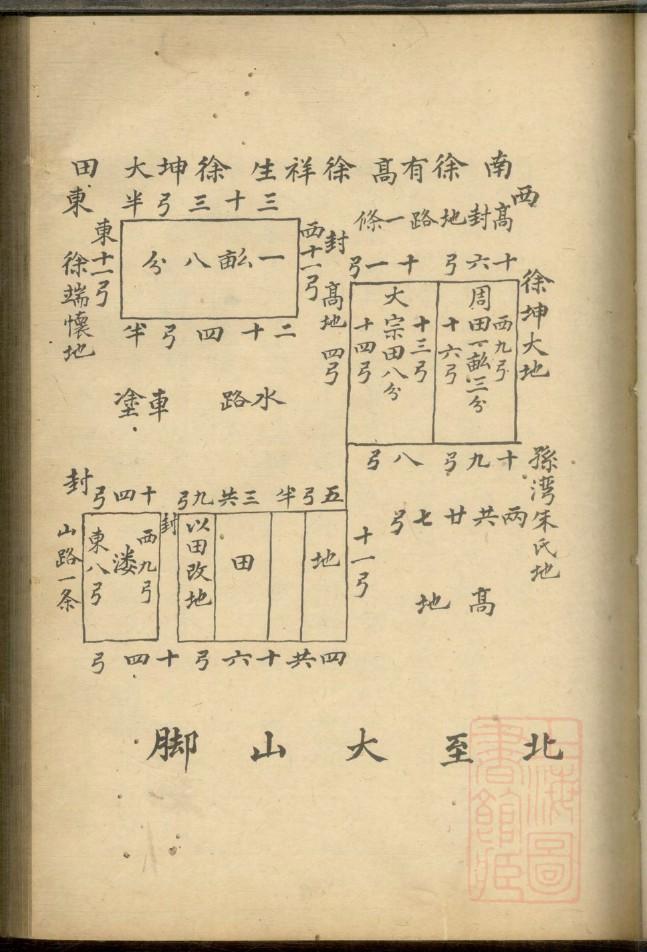 南徐有高徐祥生徐坤大田
西
高封地路一條
東
三十三弓半
西十一弓
東十一弓
一畝八分
二十四弓半
徐端懷地
封
高地四弓
十六弓
十一弓
周田一畝三分
西九弓
十六弓
大宗田八分
十三弓
十四弓
徐坤大地
十九弓
八弓
孫湾朱氏地
兩共廿七弓
高地
水路
車塗
十一弓
五弓半
三共九弓
地
田
以田改地
四共十六弓
封
封
十四弓
西九弓
溇
東八弓
十四弓
山路一条
北至大山脚
上海圖書館藏